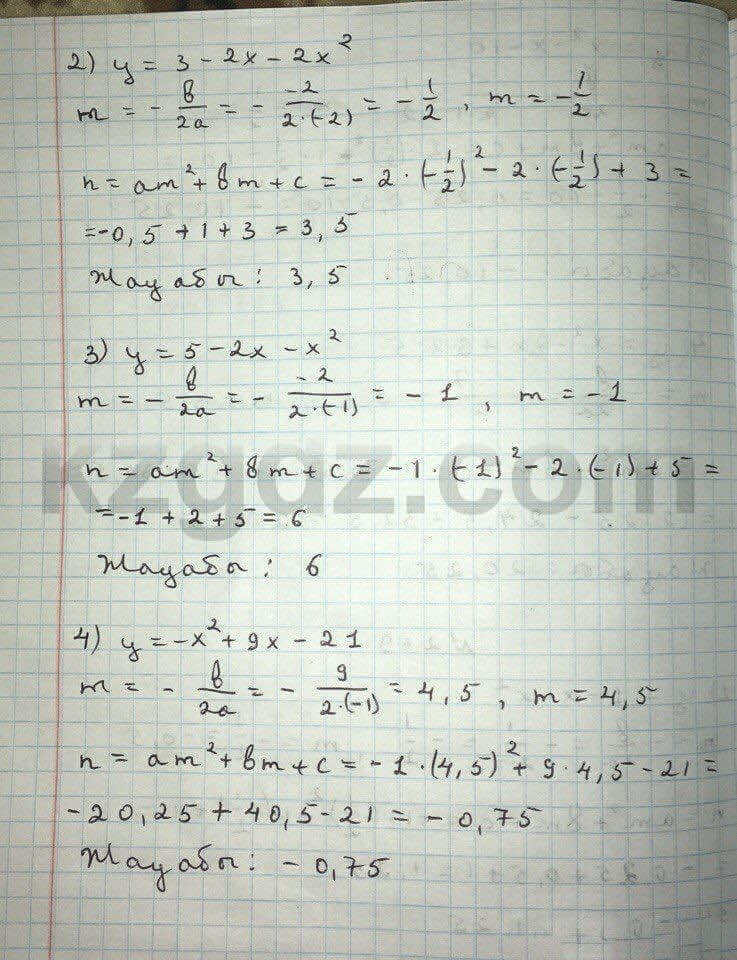 2) y = 3 - 2x - 2x²
m = - в/2a = - -2/2·(-2) = - 1/2 , m = - 1/2
n = am² + вm + c = - 2 · (-1/2)² - 2 · (-1/2) + 3 =
= -0,5 + 1 + 3 = 3,5
Жауабы: 3,5
3) y = 5 - 2x - x²
m = - в/2a = - -2/2·(-1) = - 1 , m = - 1
n = am² + вm + c = -1 · (-1)² - 2 · (-1) + 5 =
= -1 + 2 + 5 = 6
Жауабы: 6
4) y = -x² + 9x - 21
m = - в/2a = - 9/2·(-1) = 4,5 , m = 4,5
n = am² + вm + c = - 1 · (4,5)² + 9 · 4,5 - 21 =
- 20,25 + 40,5 - 21 = - 0,75
Жауабы: - 0,75
kzgdz.com